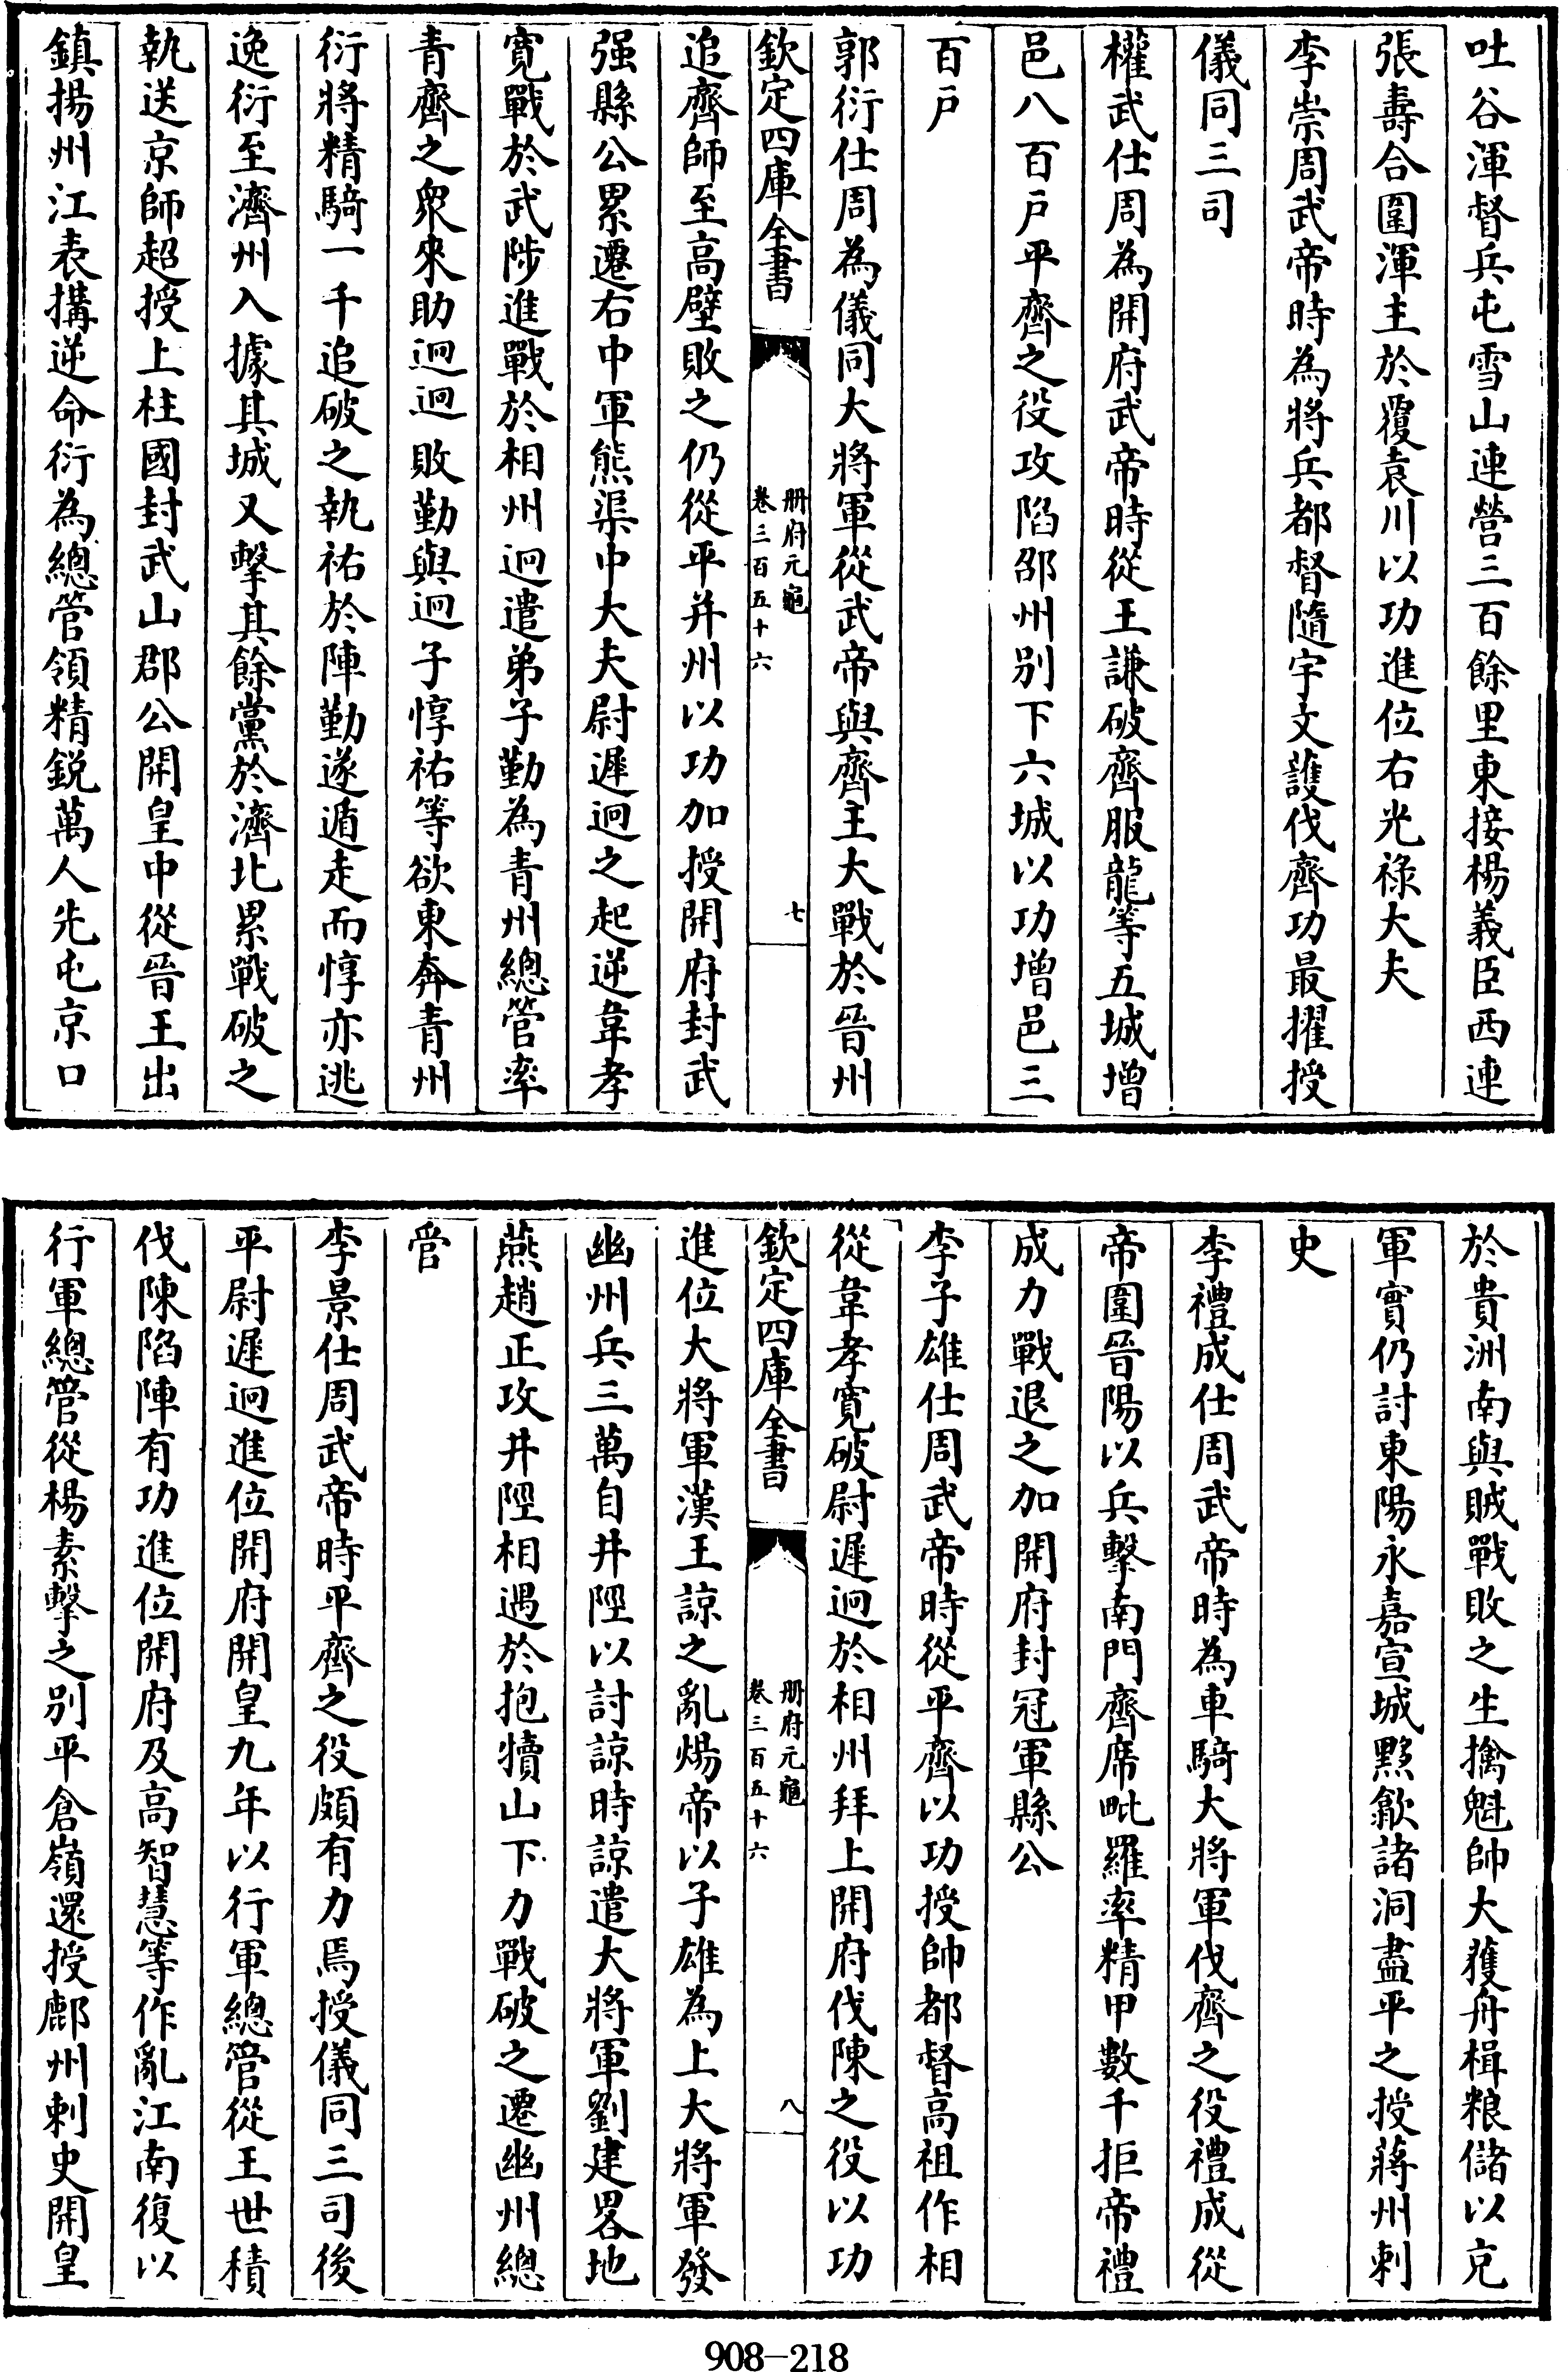 吐谷渾督兵屯雪山連營三百餘里東接楊義臣西連
張壽合圍渾主於覆袁川以功進位右光祿大夫
李崇周武帝時為將兵都督隨宇文護伐齊功最擢授
儀同三司
權武仕周為開府武帝時從王謙破齊服龍等五城增
邑八百戶平齊之役攻陷邵州别下六城以功增邑三
百戶
郭衍仕周為儀同大將軍從武帝與齊主大戰於晉州
欽定四庫全書
册府元龜
卷三百五十六
七
追齊師至高壁敗之仍從平并州以功加授開府封武
强縣公累遷右中軍熊渠中大夫尉遲迥之起逆韋孝
寛戰於武陟進戰於相州迥遣弟子勤為青州總管率
青齊之衆來助迥迥敗勤與迥子惇祐等欲東奔青州
衍將精騎一千追破之執祐於陣勤遂遁走而惇亦逃
逸衍至濟州入據其城又擊其餘黨於濟北累戰破之
執送京師超授上柱國封武山郡公開皇中從晉王出
鎮揚州江表搆逆命衍為總管領精鋭萬人先屯京口
於貴洲南與賊戰敗之生擒魁帥大獲舟楫粮儲以充
軍實仍討東陽永嘉宣城黟歙諸洞盡平之授蔣州刺
史
李禮成仕周武帝時為車騎大將軍伐齊之役禮成從
帝圍晉陽以兵擊南門齊席毗羅率精甲數千拒帝禮
成力戰退之加開府封冠軍縣公
李子雄仕周武帝時從平齊以功授帥都督高祖作相
從韋孝寛破尉遲迥於相州拜上開府伐陳之役以功
欽定四庫全書
册府元龜
卷三百五十六
八
進位大將軍漢王諒之亂煬帝以子雄為上大將軍發
幽州兵三萬自井陘以討諒時諒遣大將軍劉建畧地
燕趙正攻井陘相遇於抱犢山下力戰破之遷幽州總
管
李景仕周武帝時平齊之役頗有力焉授儀同三司後
平尉遲迥進位開府開皇九年以行軍總管從王世積
伐陳陷陣有功進位開府及高智慧等作亂江南復以
行軍總管從楊素擊之别平倉嶺還授鄜州刺史開皇
908-218